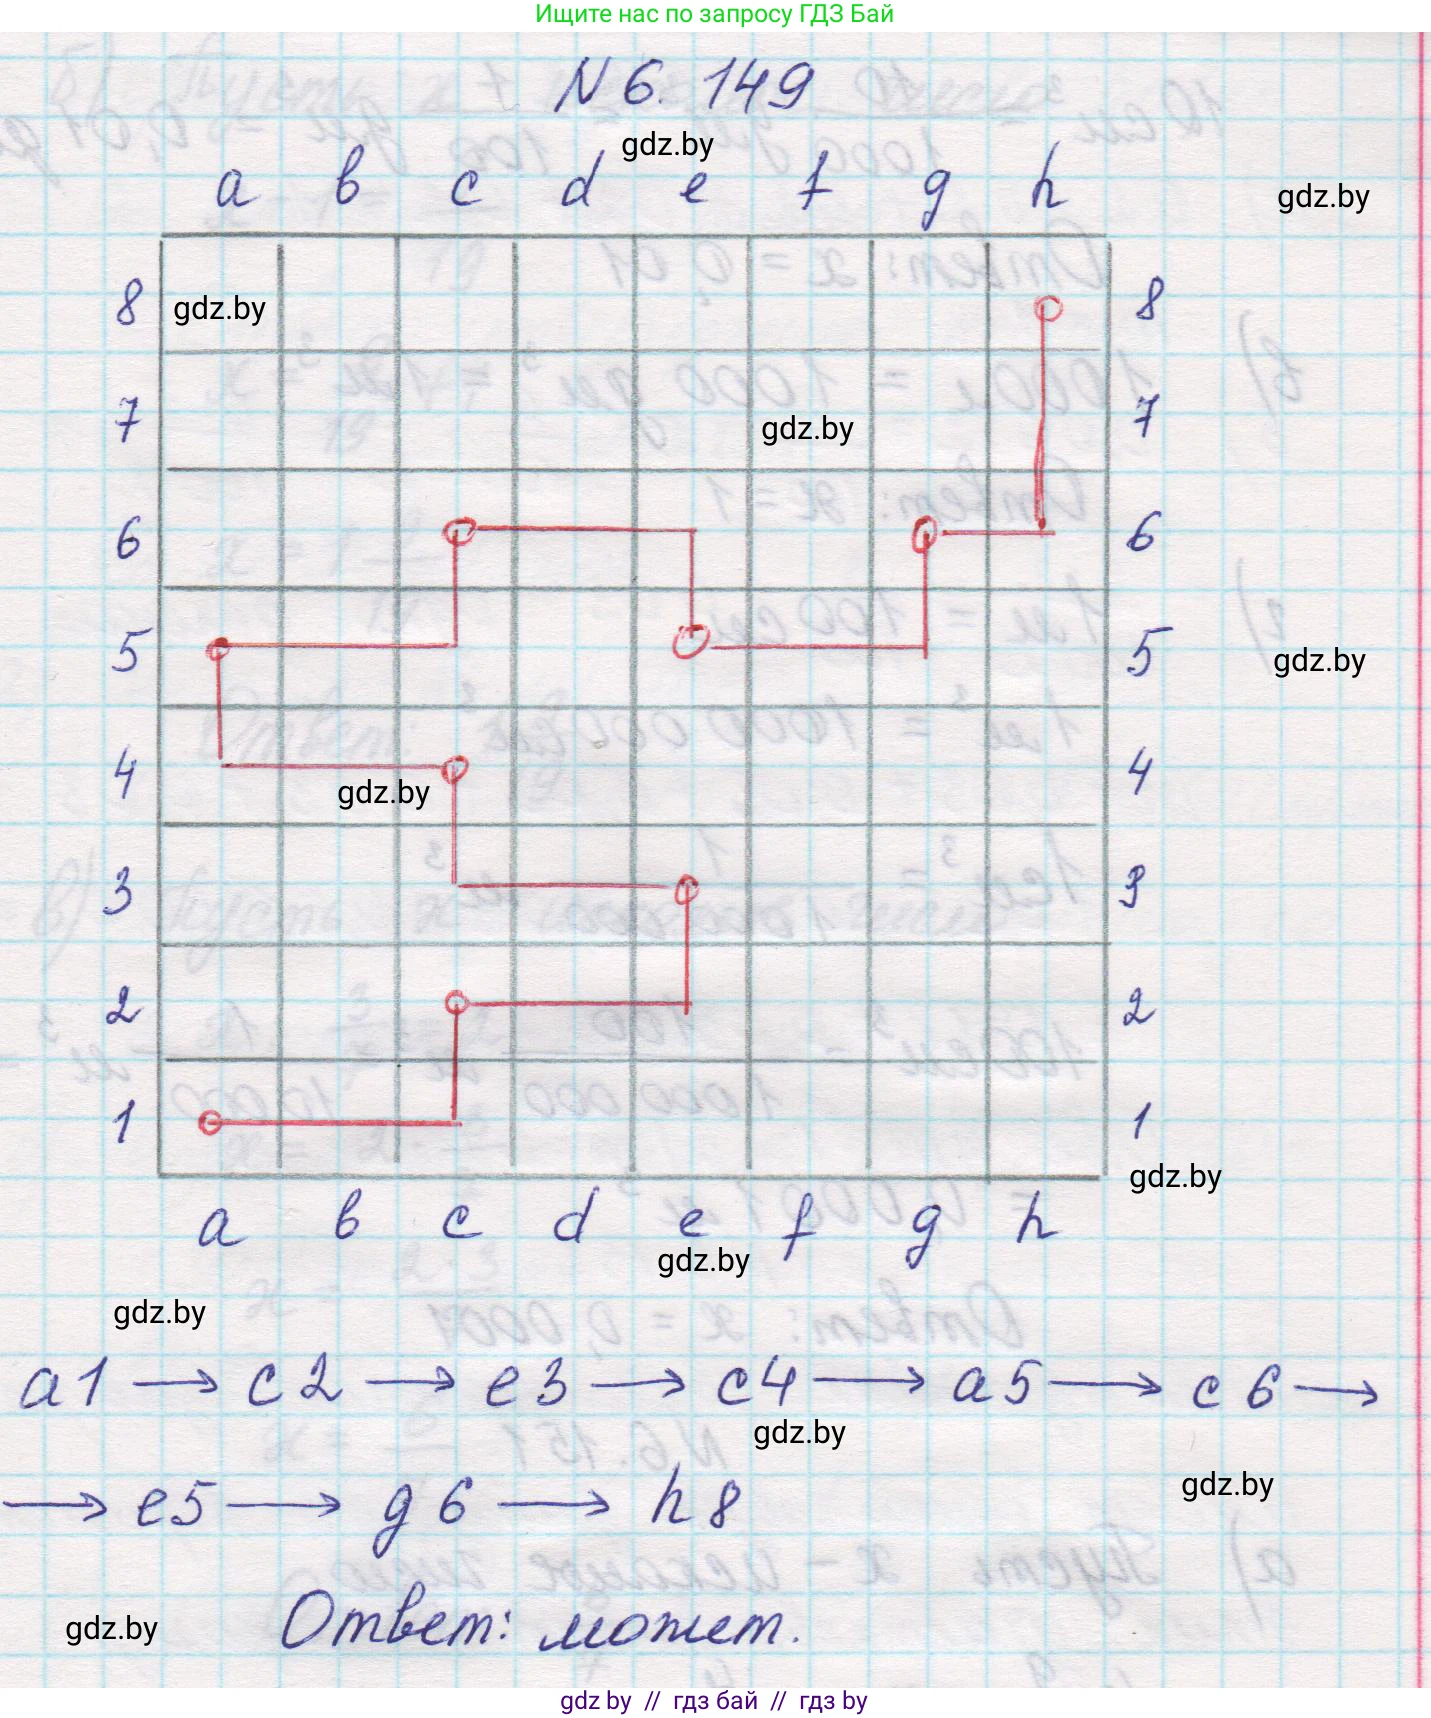 Ищите нас по запросу ГДЗ Бай
N 6. 149
gdz.by
a b c d e f g h
gdz.by
8 gdz.by 8
7 gdz.by 7
6 6
5 5
gdz.by
4 4
gdz.by
3 3
2 2
1 1
gdz.by
a b c d e f g h
gdz.by
gdz.by
a1 → c2 → e3 → c4 → a5 → c6 →
gdz.by
gdz.by
→ e5 → g6 → h8
gdz.by Ответ: может.
gdz by // гдз бай // гдз by